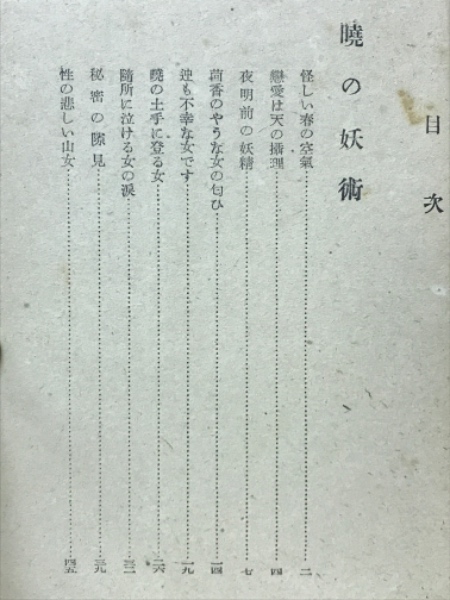 目次
曉の妖術
怪しい春の空氣……二
戀愛は天の攝理……四
夜明前の妖精……七
茴香のやうな女の匂ひ……一四
妾も不幸な女です……一九
曉の土手に登る女……二六
隨所に泣ける女の淚……三二
秘密の隙見……三九
性の悲しい山女……四五